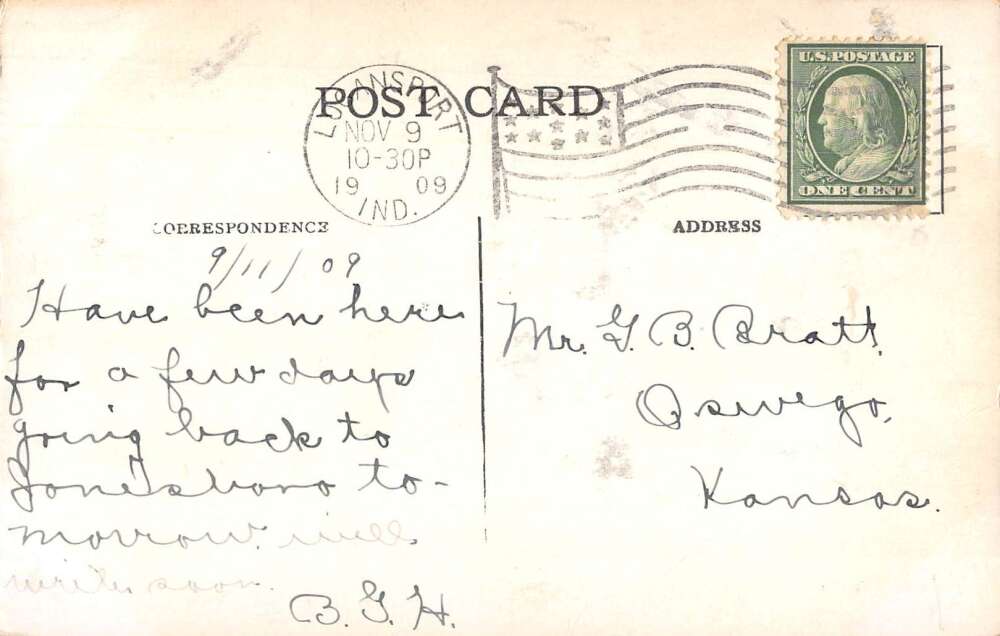 POST CARD
LOGANSPORT
NOV 9
10-30P
1909
IND.
U.S. POSTAGE
ONE CENT
CORRESPONDENCE
9/11/09
Have been here
for a few days
going back to
Jonesboro to-
morrow. will
write soon.
B. G. H.
ADDRESS
Mr. G. B. Bratt,
Oswego,
Kansas.